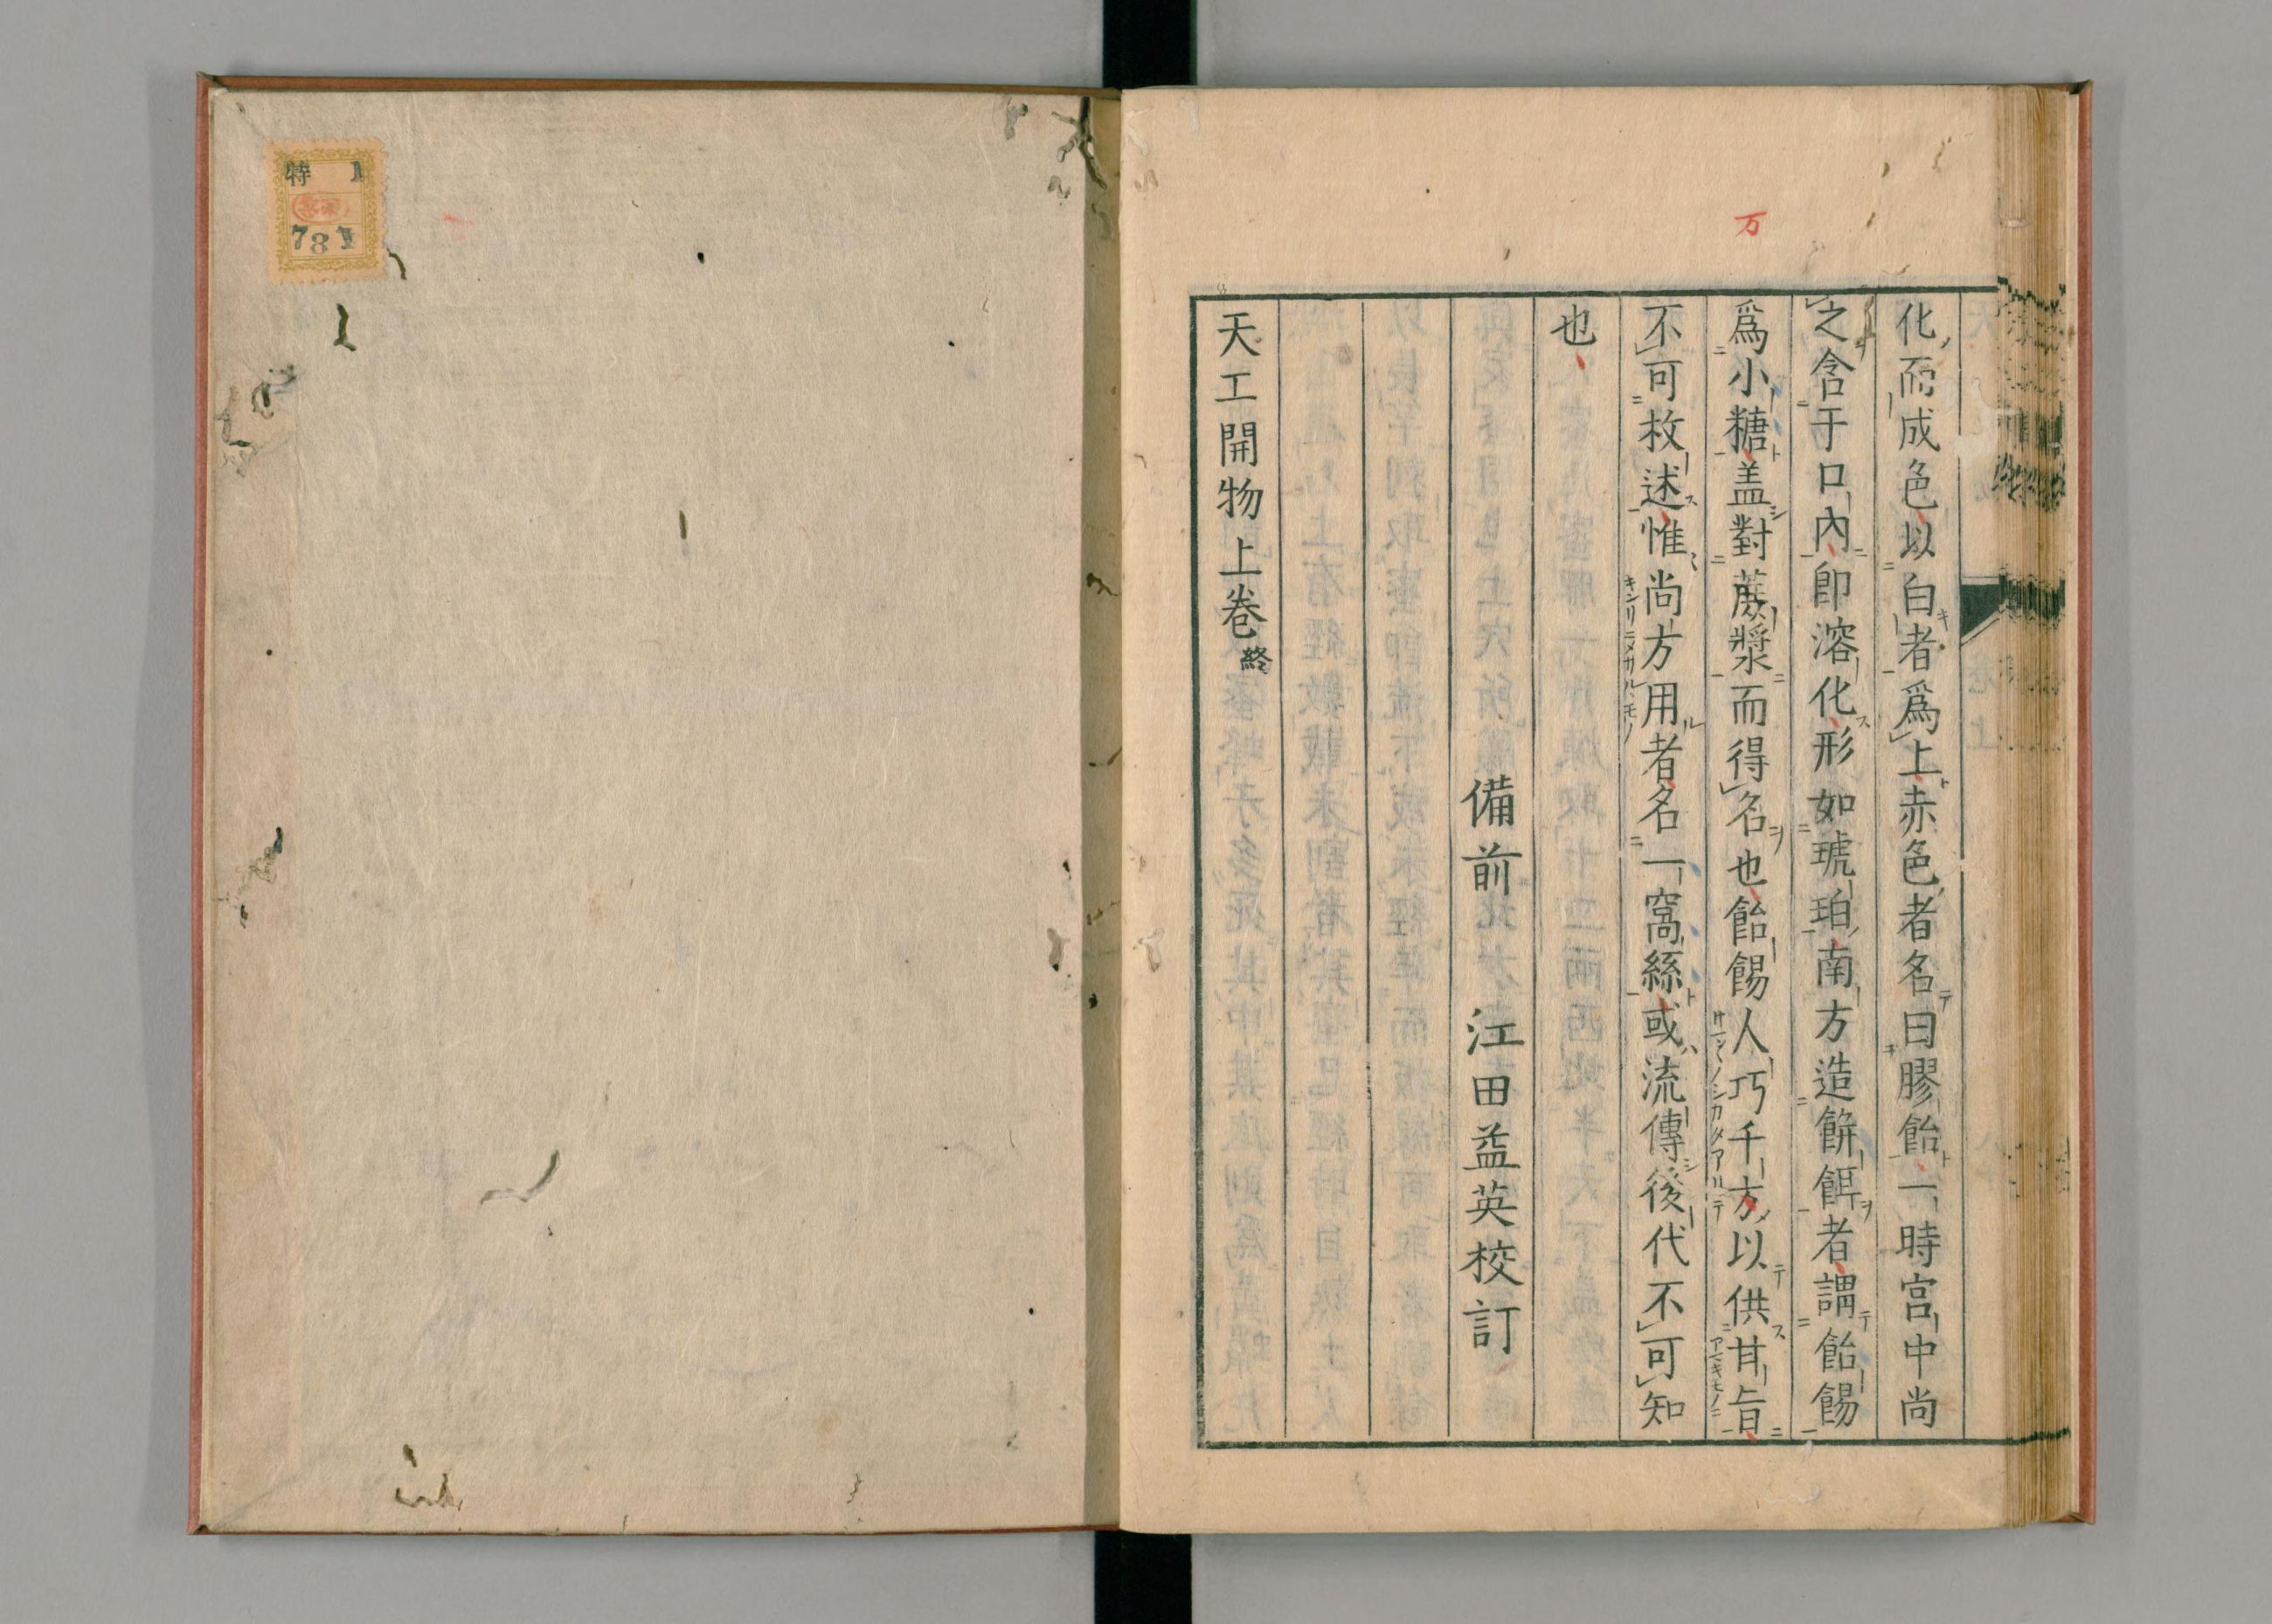 万
化而成色以白者爲上赤色者名曰膠飴一時宮中尚
之含于口內卽溶化形如琥珀南方造餅餌者謂飴餳
爲小糖盖對蔗漿而得名也飴餳人巧千方以供甘旨
不可枚述惟尚方用者名一窩絲或流傳後代不可知
也
備前 江田益英校訂
天工開物上卷終
特 1
781